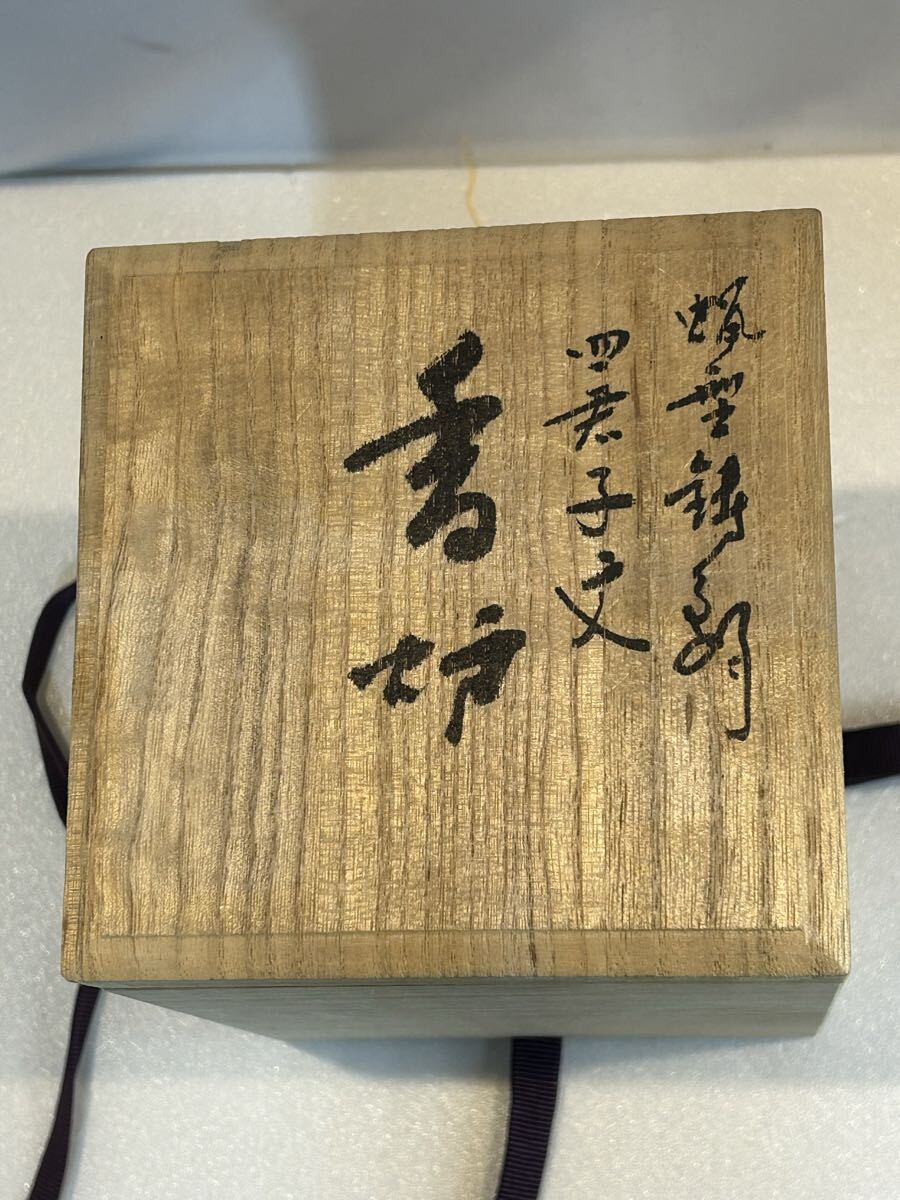 蝋型鋳銅
四君子文
香炉